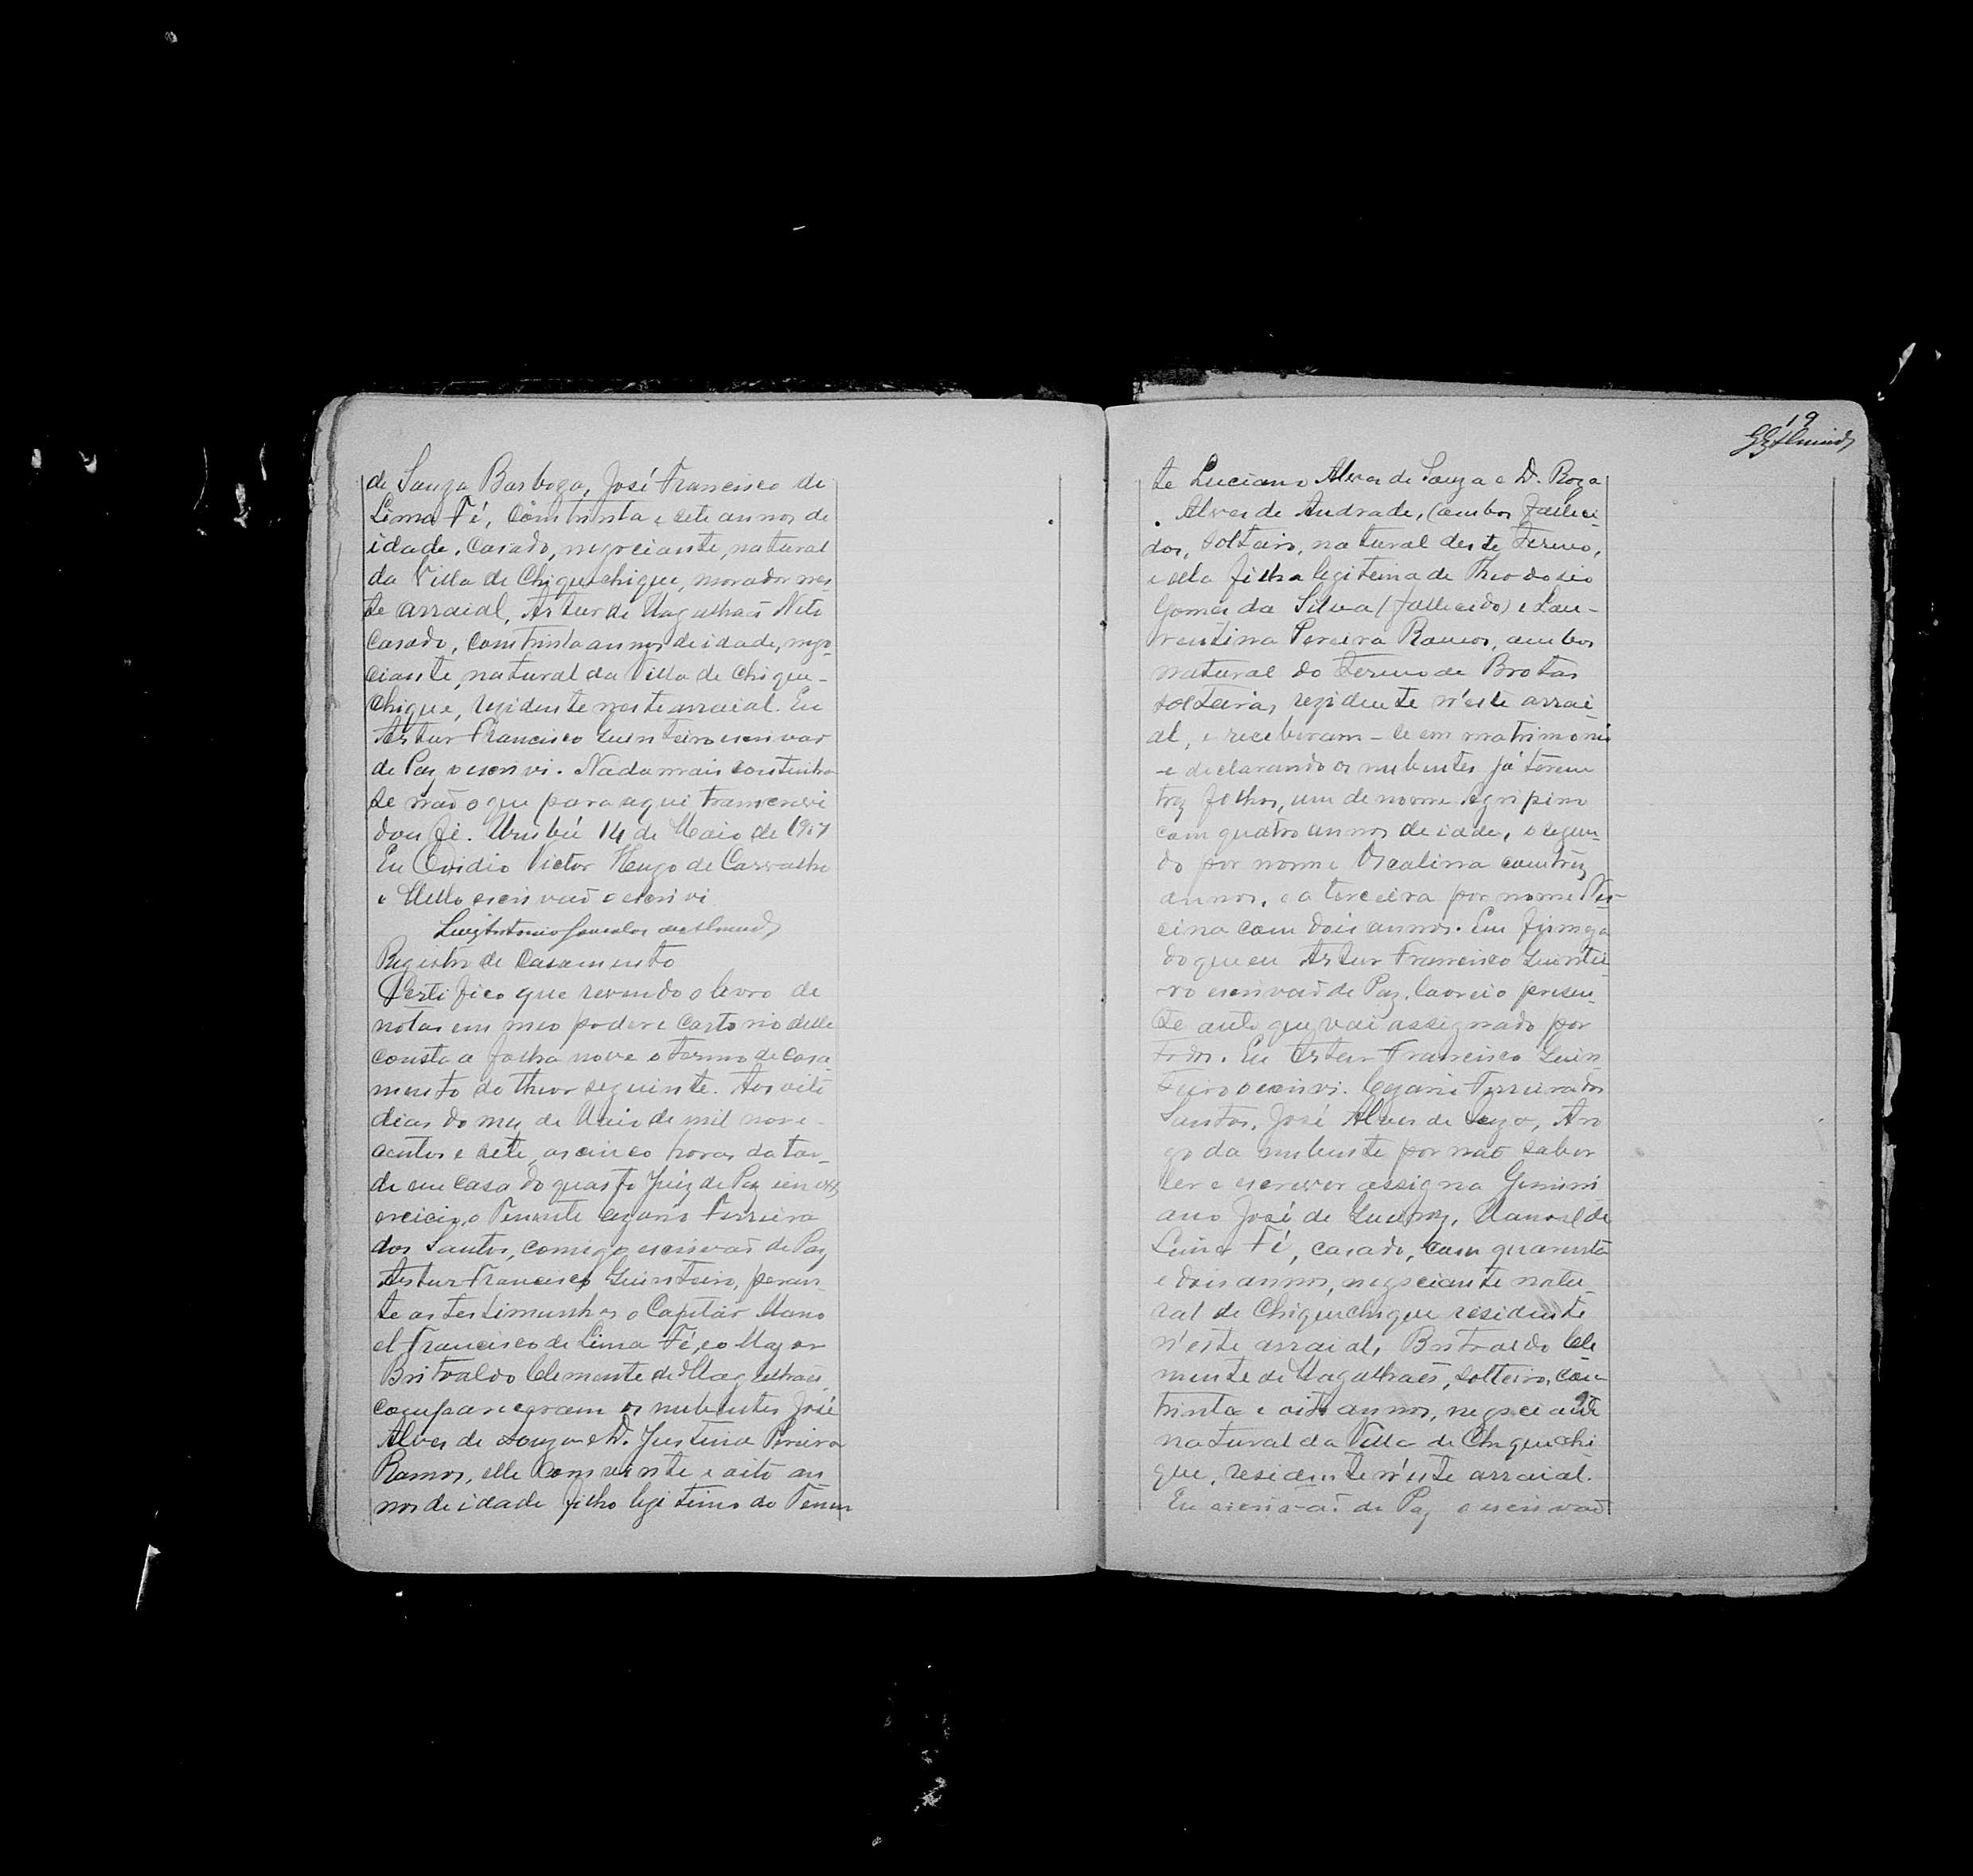 de Souza Barboza, José Francisco de
Lima Fé, com trinta e sete annos de
idade, casado, negociante, natural
da Villa de Chiquechique, morador nes
te arraial, Artur de Magalhaẽs Neto
casado, com trinta annos de idade, nego-
ciante, natural da Villa de Chique-
chique, rezidente neste arraial. Eu
Artur Francisco Guinteiro escrivaõ
de Paz o escrivi. Nada mais continha
se naõ o que para aqui transcrevi
dou fé. Urubú 14 de Maio de 1907
Eu Ovidio Victor Hugo de Carvalho
e Mello escrivaõ o escrivi
Luiz Antonio Gonsalves de Almeida
Registro de Casamento
Certifico que revendo o livro de
notas em meo poder e cartorio delle
consta a folha nove o termo de casa
mento do theor seguinte. Aos oito
dias do mez de Maio de mil nove-
centos e sete, as cinco horas da tar-
de em casa do quarto Juiz de Paz em ex
ercicio, o Tenente Cezario Ferreira
dos Santos, comigo escrivaõ de Paz
Artur Francisco Guinteiro, peran-
te as testimunhas o Capitaõ Mano
el Francisco de Lima Fé, e o Major
Britualdo Clemente de Magalhaẽs,
compareceram os nubentes José
Alves de Souza e D. Justina Pereira
Ramos, elle com vinte e oito an
nos de idade filho legitimo do Tenen
19
te Luciano Alves de Souza e D. Roza
Alves de Andrade, (ambos falleci-
dos, solteiro, natural deste Termo,
e ella filha legitima de Theodosio
Gomes da Silva (fallecido) e Lau-
rentina Pereira Ramos, ambos
natural do Termo de Brotas
solteira, rezidente n'este arrai-
al, e receberam-se em matrimonio
e declarando os nubentes já terem
trez filhos, um de nome Agripino
com quatro annos de idade, o segun-
do por nome Ascalina com trez
annos, e a terceira por nome
cina com dois annos. Em firmeza
do que eu Artur Francisco Guintei-
ro escrivaõ de Paz, lavrei o presen-
te auto que vai assignado por
todos. Eu Artur Francisco Guin
teiro o escrivi. Cezario Ferreira dos
Santos, José Alves de Souza, Arro
go da nubente por naõ saber
ler e escrever assigna Gemini
ano José de Queiroz, Manoel de
Lima Fé, casado, com quarenta
e dois annos, negociante natu-
ral de Chiquechique residente
n'este arraial, Britualdo Cle
mente de Magalhaẽs, solteiro, com
trinta e oito annos, negociante
natural da Villa de Chiquechi
que, residente n'este arraial.
Eu escrivaõ de Paz o escrivaõ